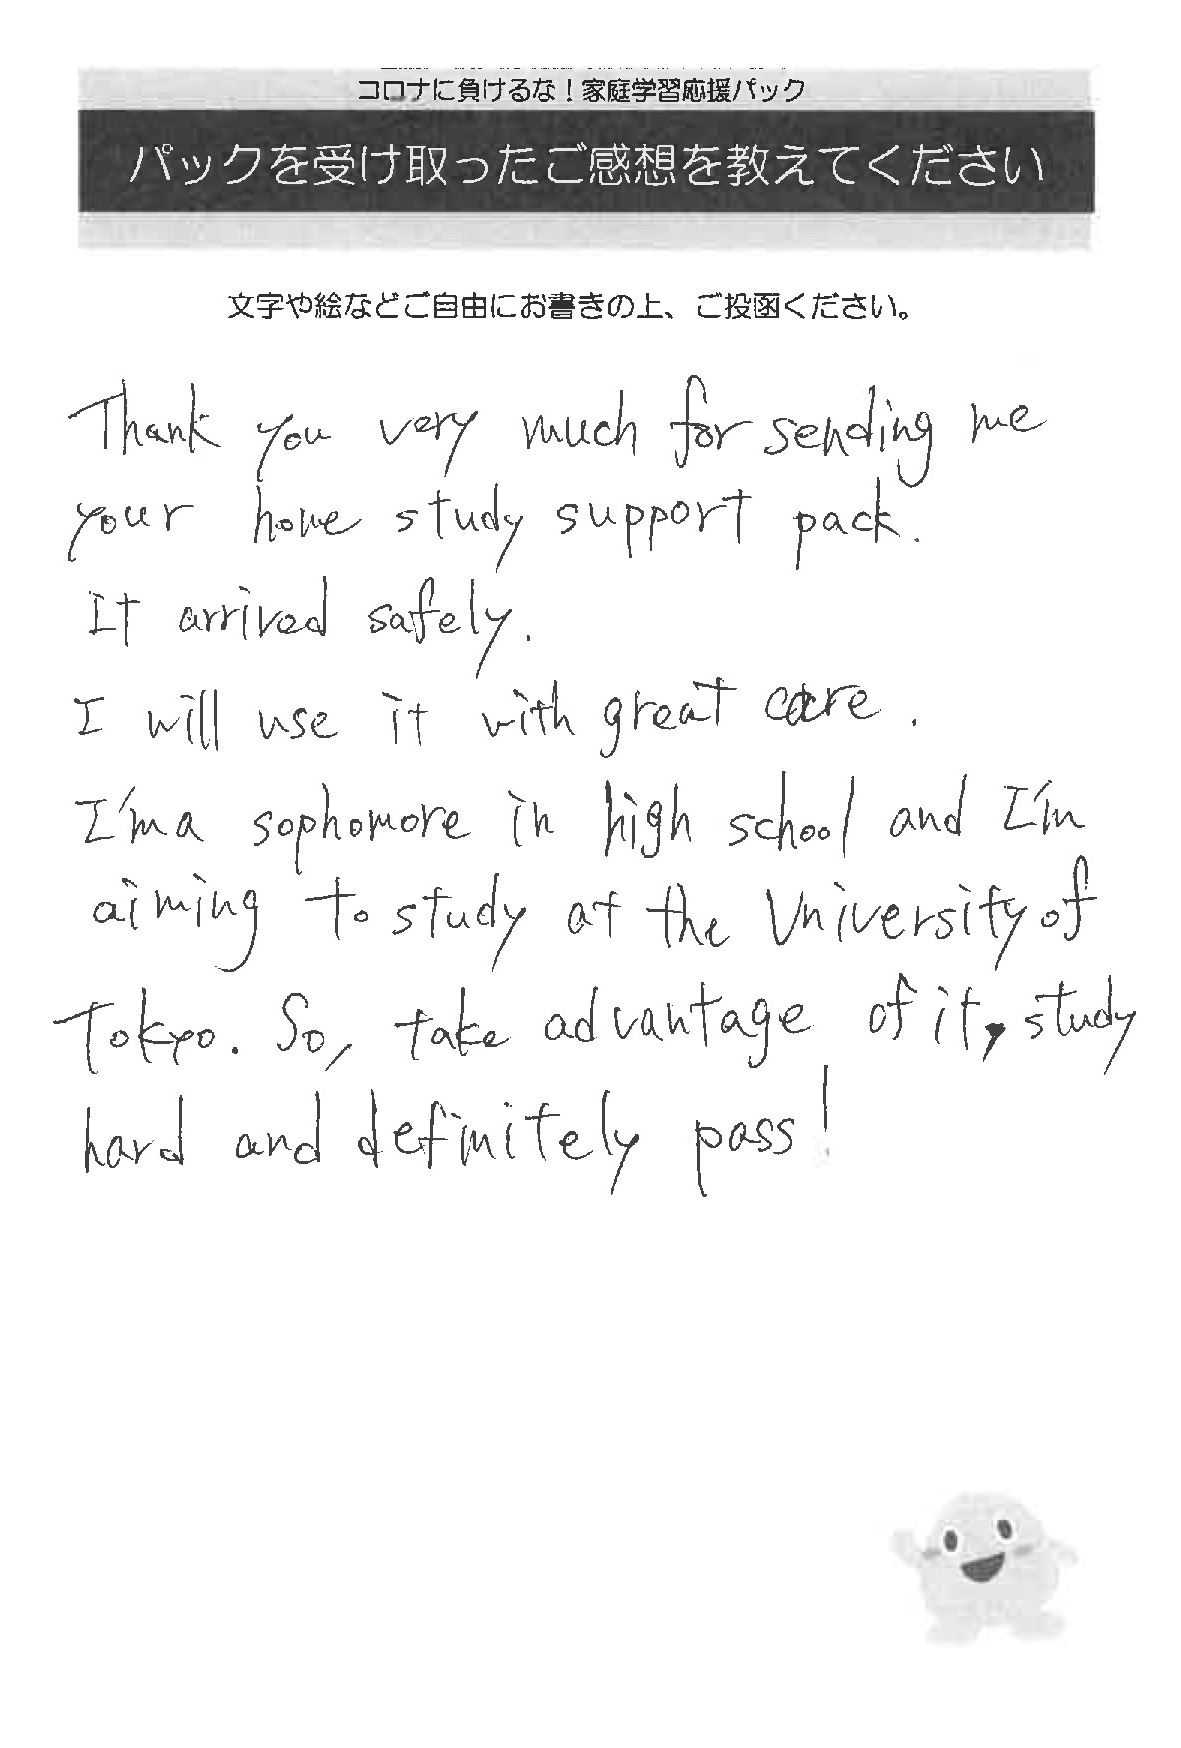 コロナに負けるな！家庭学習応援パック
パックを受け取ったご感想を教えてください
文字や絵などご自由にお書きの上、ご投函ください。
Thank you very much for sending me
your home study support pack.
It arrived safely.
I will use it with great care.
I'm a sophomore in high school and I'm
aiming to study at the University of
Tokyo. So, take advantage of it, study
hard and definitely pass!